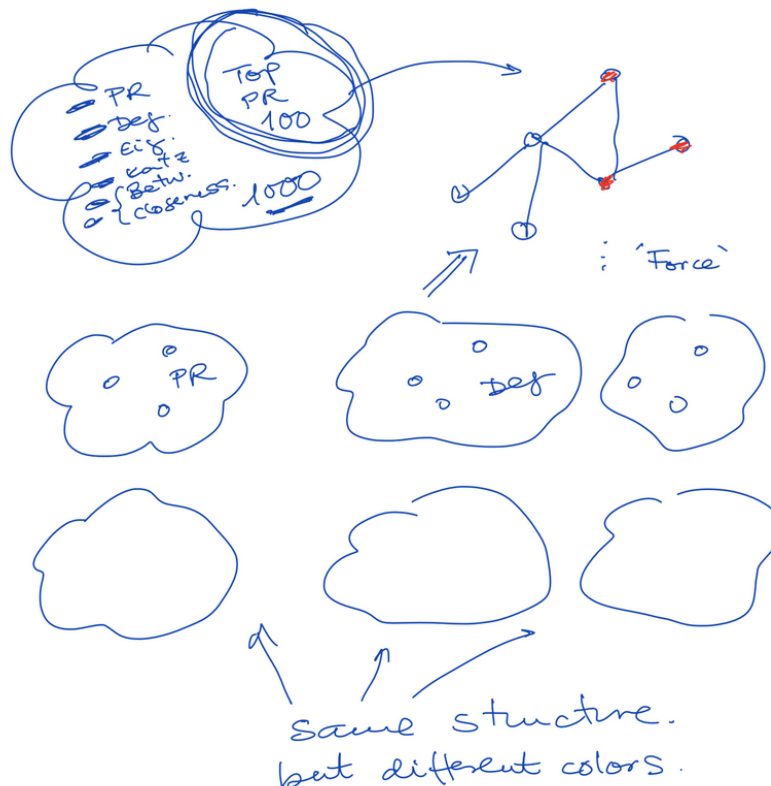 PR
Deg.
Eig.
Katz
Betw.
Closeness.
Top
PR
100
1000
: 'Force'
PR
Deg
same structure.
but different colors.